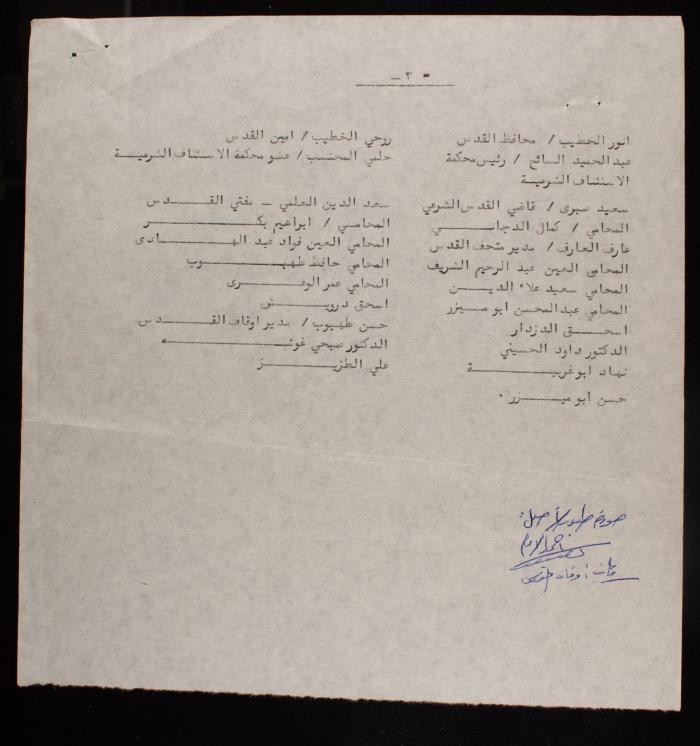 - ٣ -
انور الخطيب / محافظ القدس
عبد الحميد السائح / رئيس محكمة
الاستئناف الشرعية
سعيد صبرى / قاضي القدس الشرعي
المحامي / كمال الدجاني
عارف العارف / مدير متحف القدس
المحامي العين عبد الرحيم الشريف
المحامي سعيد علاء الدين
المحامي عبد المحسن ابو ميزر
اسحق الدزدار
الدكتور داود الحسيني
نهاد ابو غربية
حسن ابو ميزر .
روحي الخطيب / امين القدس
حلمي المحتسب / عضو محكمة الاستئناف الشرعية
سعد الدين العلمي - مفتي القدس
المحامي / ابراهيم بكر
المحامي العين فواد عبد الهادى
المحامي حافظ طهبوب
المحامي عمر الوعرى
اسحق درويش
حسن طهبوب / مدير اوقاف القدس
الدكتور صبحي غوشه
علي الطزيز
صورة طبق الأصل
اوقاف القدس